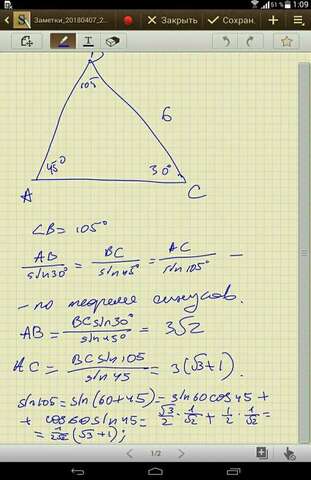 51 % 1:09
Заметки_20180407_2... Закрыть Сохран.
105
6
45°
30°
A
C
∠B = 105°
AB/sin30° = BC/sin45° = AC/sin105° —
– по теореме синусов.
AB = BC sin30°/sin45° = 3√2
AC = BC sin105/sin45 = 3(√3+1).
sin105 = sin(60+45) = sin60cos45 +
+ cos60 sin45 = √3/2 · 1/√2 + 1/2 · 1/√2 =
= 1/2√2 (√3+1);
1/2